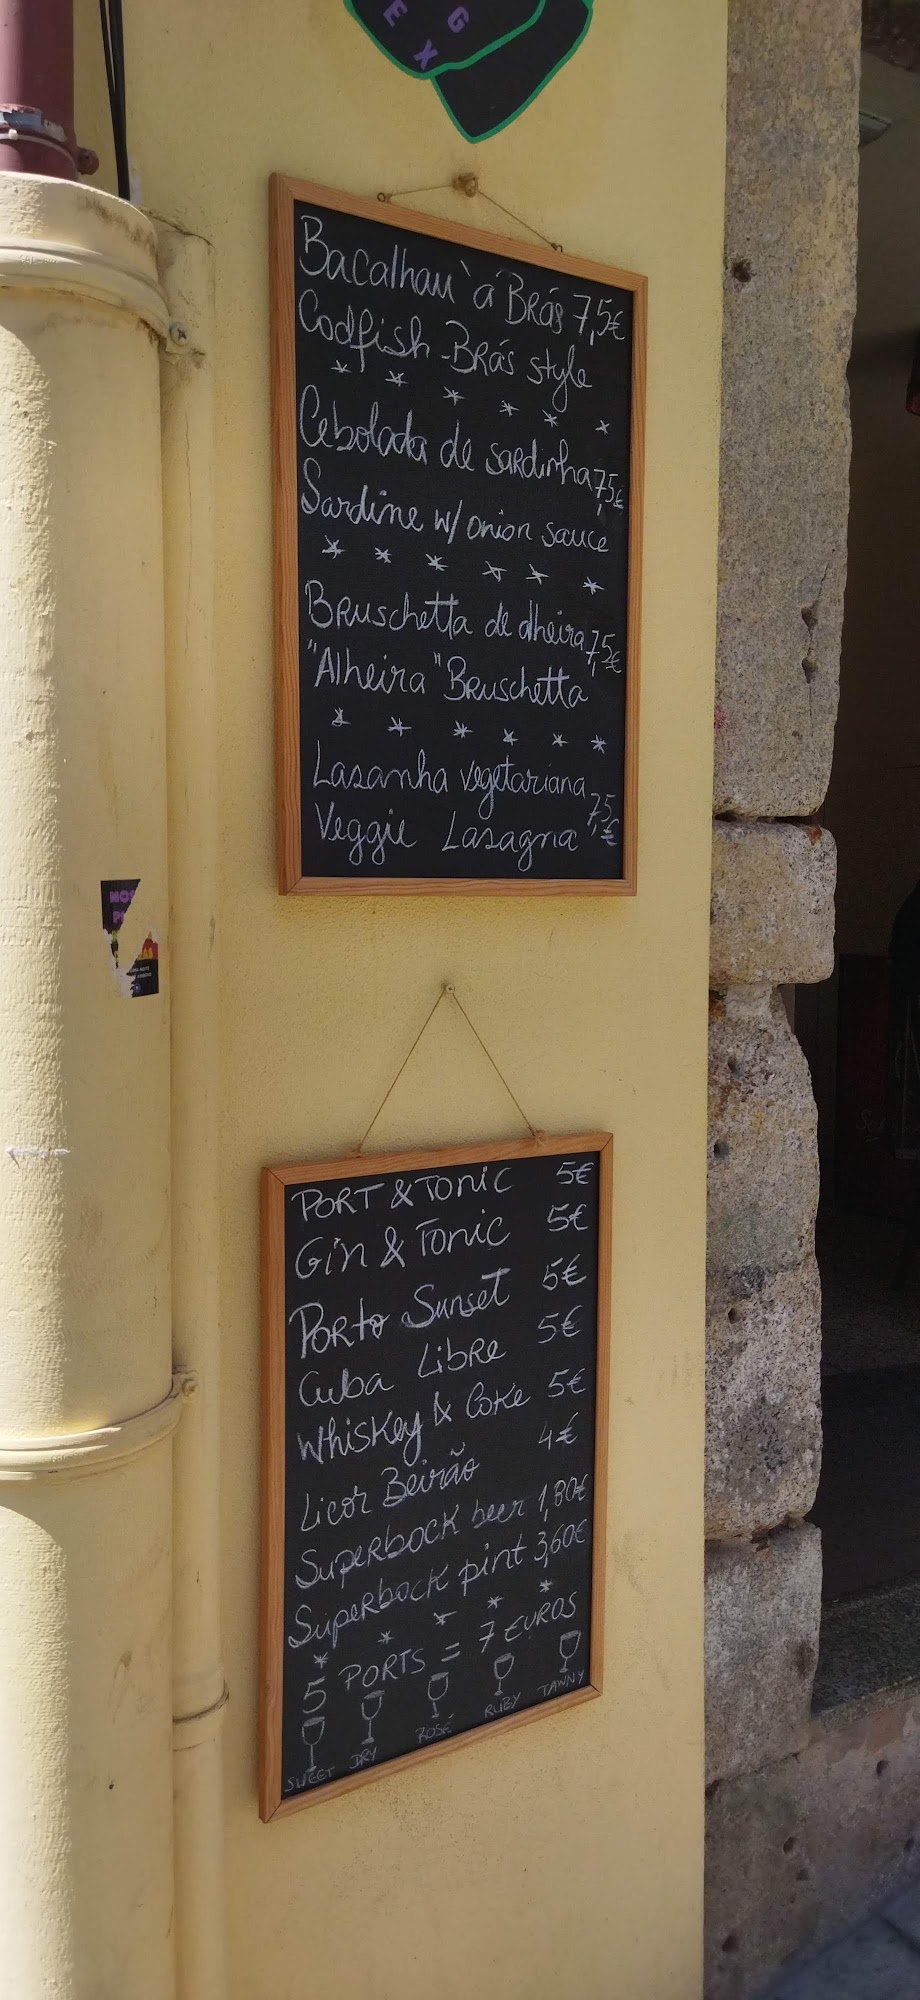 E G
X
Bacalhau à Brás 7,5€
Codfish-Brás style
* * * * * *
Cebolada de sardinha 7,5€
Sardine w/ onion sauce
* * * * * *
Bruschetta de alheira 7,5€
"Alheira" Bruschetta
* * * * * *
Lasanha vegetariana 7,5€
Veggie Lasagna
PORT & TONIC 5€
Gin & Tonic 5€
Porto Sunset 5€
Cuba Libre 5€
Whiskey & Coke 5€
Licor Beirão 4€
Superbock beer 1,80€
Superbock pint 3,60€
* * * * *
5 PORTS = 7 EUROS
SWEET DRY ROSÉ RUBY TAWNY